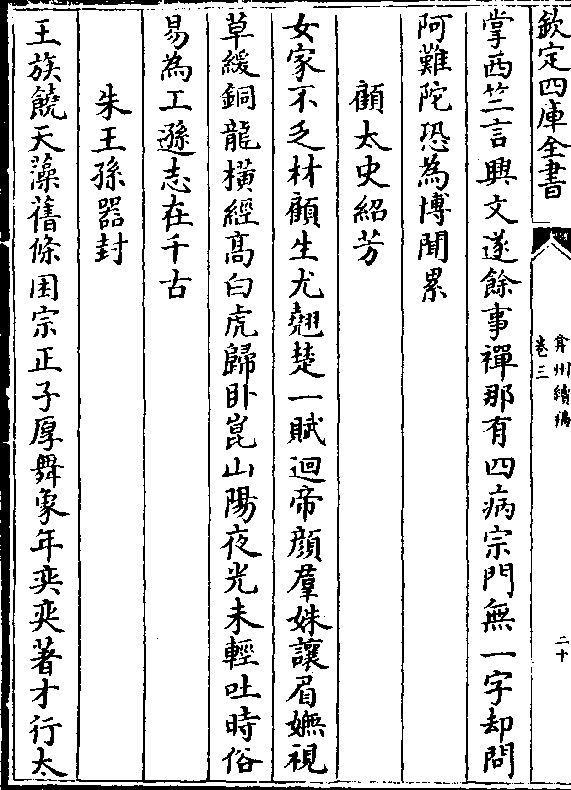 欽定四庫全書
弇州續稿
卷三
二十
掌西竺言興文遂餘事禪那有四病宗門無一字却問
阿難陀恐為博聞累
顧太史紹芳
女家不乏材顧生尤翹楚一賦迴帝顔羣姝讓眉嫵視
草緩銅龍橫經高白虎歸卧崑山陽夜光未輕吐時俗
易為工遜志在千古
朱王孫器封
王族饒天藻舊條困宗正子厚舞象年奕奕著才行太